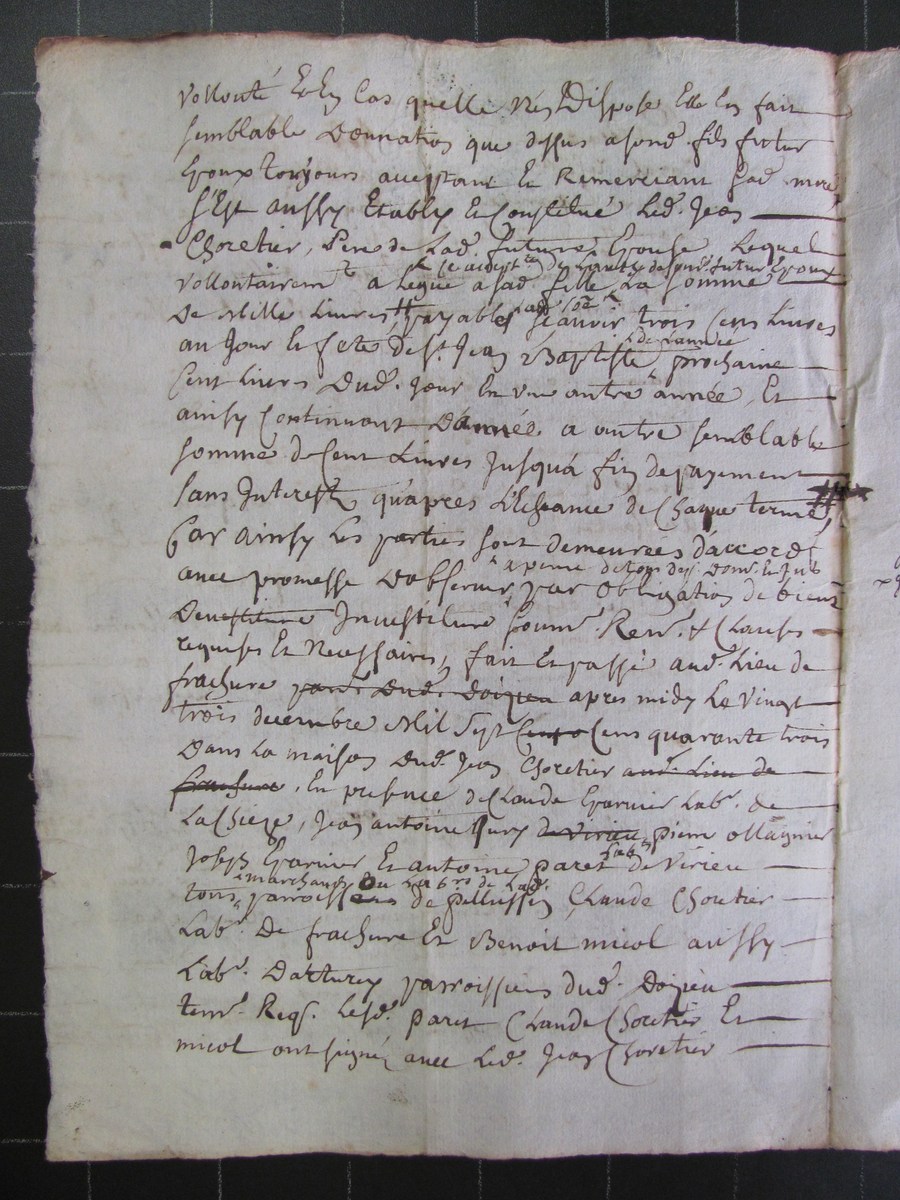 vollonté Et En Cas quelle n'En Dispose Elle En fait
semblable Donnation que dessus a sond. fils futur
Epoux toujours acceptant Et Remerciant sad. mere
s'Est aussy Etably Et Constitué Led. Jean
Choretier, Pere de Lad. future Epouse Lequel
de Lauthe de sond. futur Epoux
vollontairemt a Legué a sad. fille La somme
De Mille Livres, payable sçauoir trois Cens Livres
de L'année
au Jour Et fete de st. Jean Baptiste prochaine
Cent Livres Dud. Jour En vne autre année, Et
ainsy Continuant D'année a autre semblable
somme de Cent Livres Jusqu'a fin de payement
sans Interest qu'apres L'Echeance de Chaque terme
Par ainsy Les parties sont demeurées d'accord
a peine de tous des. Dom. Et Jnts
auec promesse D'obseruer par obligation de biens
Deuestiture Inuestiture soumn. Renon. & Clauses
requises Et Necessaires, fait Et passé aud. Lieu de
frachure parr. Dud. Doizieu apres midy Le vingt
trois decembre Mil Sept Cens quarante trois
Dans La maison Dud. Jean Choretier aud. Lieu de
frachure, En presence de Claude Garnier Labr. de
La Chieze, Jean antoine Jury de Virieu pierre Ollagnier
Labrs
Joseph Garnier Et antoine paret de Virieu
marchands ou Labrs de Lad.
tous parroissiens de pellussin Claude Choretier
Labr. De frachure Et Benoit micol aussy
Labr. D'arturey parroissiens dud. Doizieu
temn. Reqs. Lesd. paret Claude Choretier Et
micol ont signé auec Led. Jean Choretier